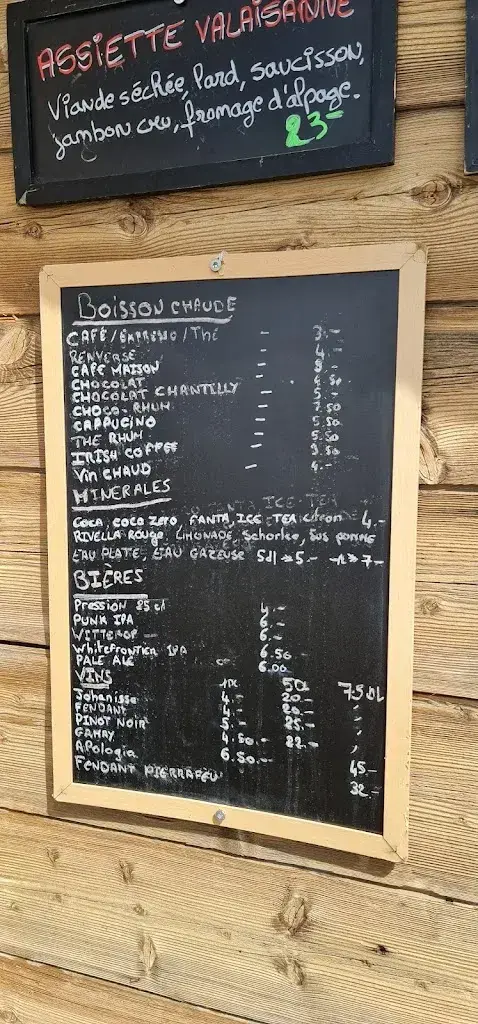 ASSIETTE VALAISANNE
Viande séchée, lard, saucisson,
jambon cru, fromage d'alpage.
23-
BOISSON CHAUDE
CAFÉ/EXPRESSO/Thé - 3.-
RENVERSE 4.-
CAFÉ MAISON -
CHOCOLAT - .50
CHOCOLAT CHANTILLY - 5.-
CHOCO-RHUM - 7.50
CAPPUCINO - 5.50
THE RHUM - 5.50
IRISH COFFEE - 9.50
Vin CHAUD - 4.-
MINERALES
ICE-TEA
Coca, coco zero, FANTA, ICE TEA citron 4.-
RIVELLA ROUGE, LIMONADE, Schorlee, Sus POMME
EAU PLATE, EAU GAZEUSE 5dl 5.- 7-
BIÈRES
Pression 25cl 4.-
PUNK IPA 6.-
6.-
Whitefrontier IPA 6.50
PALE ALE 6.00
VINS 50L 75DL
Johanisse 4.- 20.-
FENDANT 4.- 20.-
PINOT NOIR 5.- 25.-
GAMAY 4.50.- 22.-
Apologia 6.50.- 45.-
FENDANT PIERRAFEU 32.-